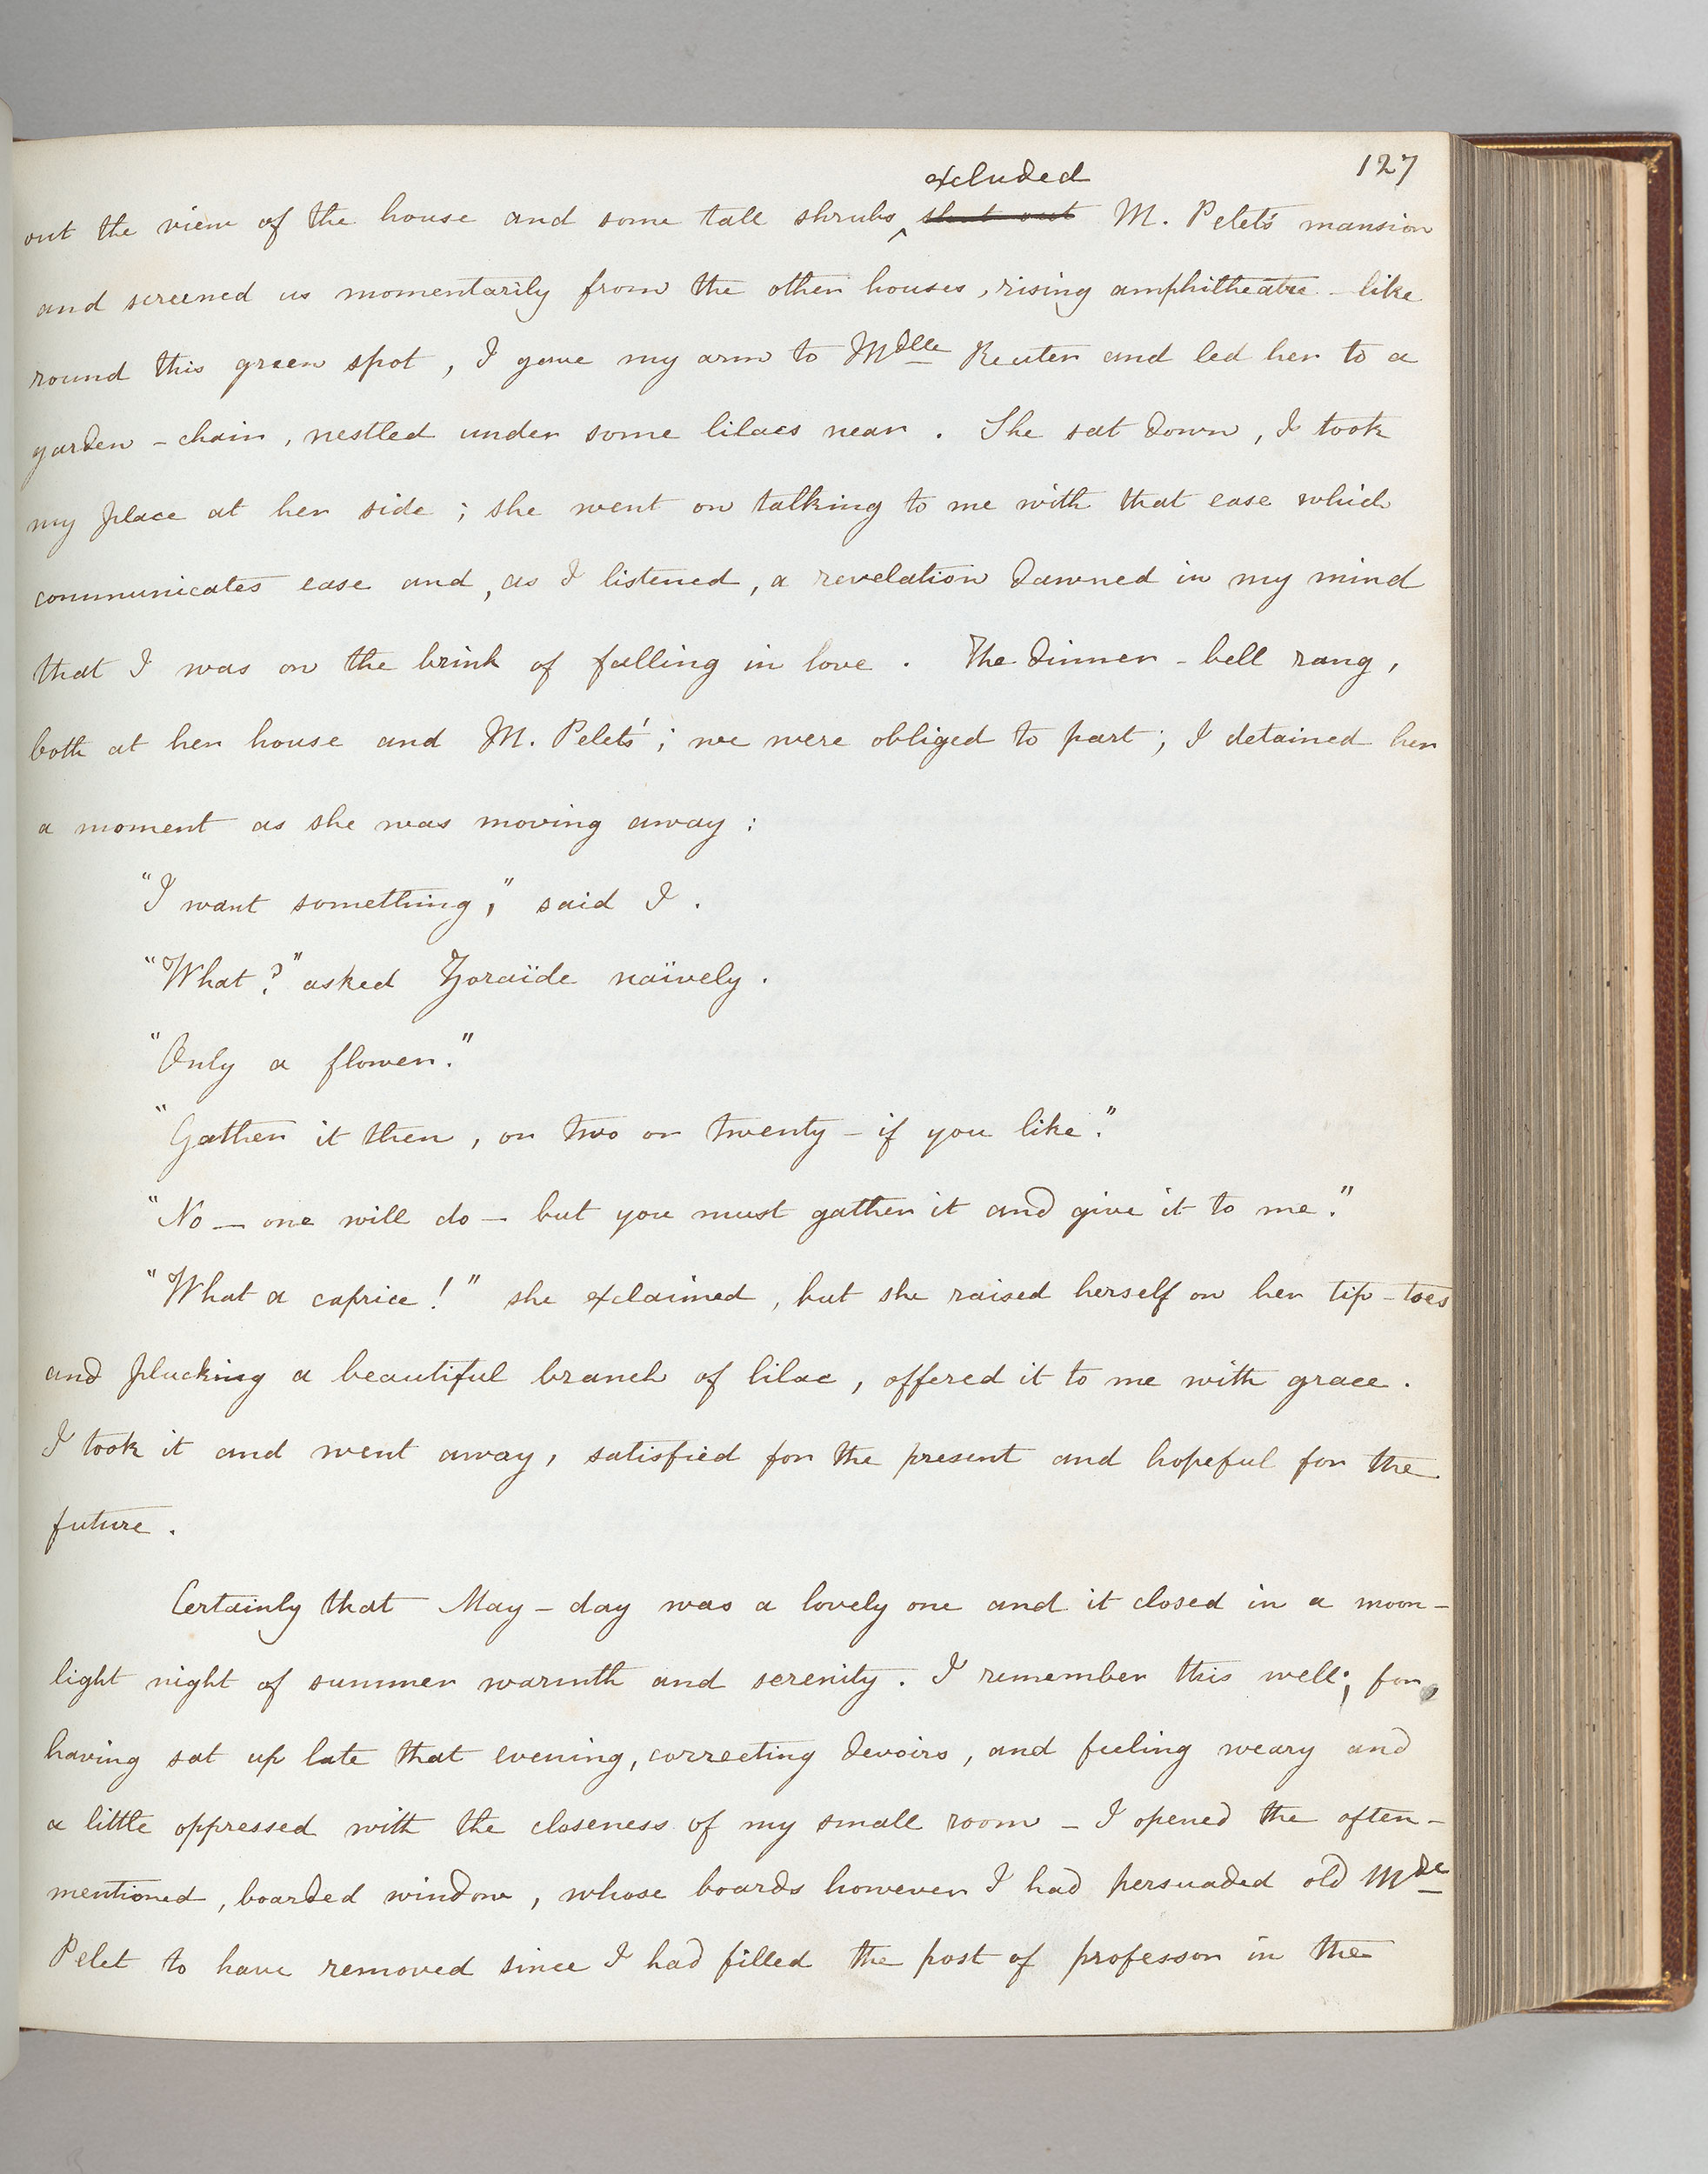 127
excluded
out the view of the house and some tall shrubs ‸ shut out M. Pelet's mansion
and screened us momentarily from the other houses, rising amphitheatre-like
round this green spot, I gave my arm to Mdlle Reuter and led her to a
garden-chair, nestled under some lilacs near. She sat down, I took
my place at her side; she went on talking to me with that ease which
communicates ease and, as I listened, a revelation dawned in my mind
that I was on the brink of falling in love. The dinner-bell rang,
both at her house and M. Pelet's; we were obliged to part; I detained her
a moment as she was moving away:
"I want something," said I.
"What?" asked Zoraïde naïvely.
"Only a flower."
"Gather it then, or two or twenty - if you like."
"No — one will do — but you must gather it and give it to me."
"What a caprice!" she exclaimed, but she raised herself on her tip-toes
and plucking a beautiful branch of lilac, offered it to me with grace.
I took it and went away, satisfied for the present and hopeful for the
future.
Certainly that May-day was a lovely one and it closed in a moon-
light night of summer warmth and serenity. I remember this well; for,
having sat up late that evening, correcting devoirs, and feeling weary and
a little oppressed with the closeness of my small room - I opened the often-
mentioned, boarded window, whose boards however I had persuaded old Mde
Pelet to have removed since I had filled the post of professor in the